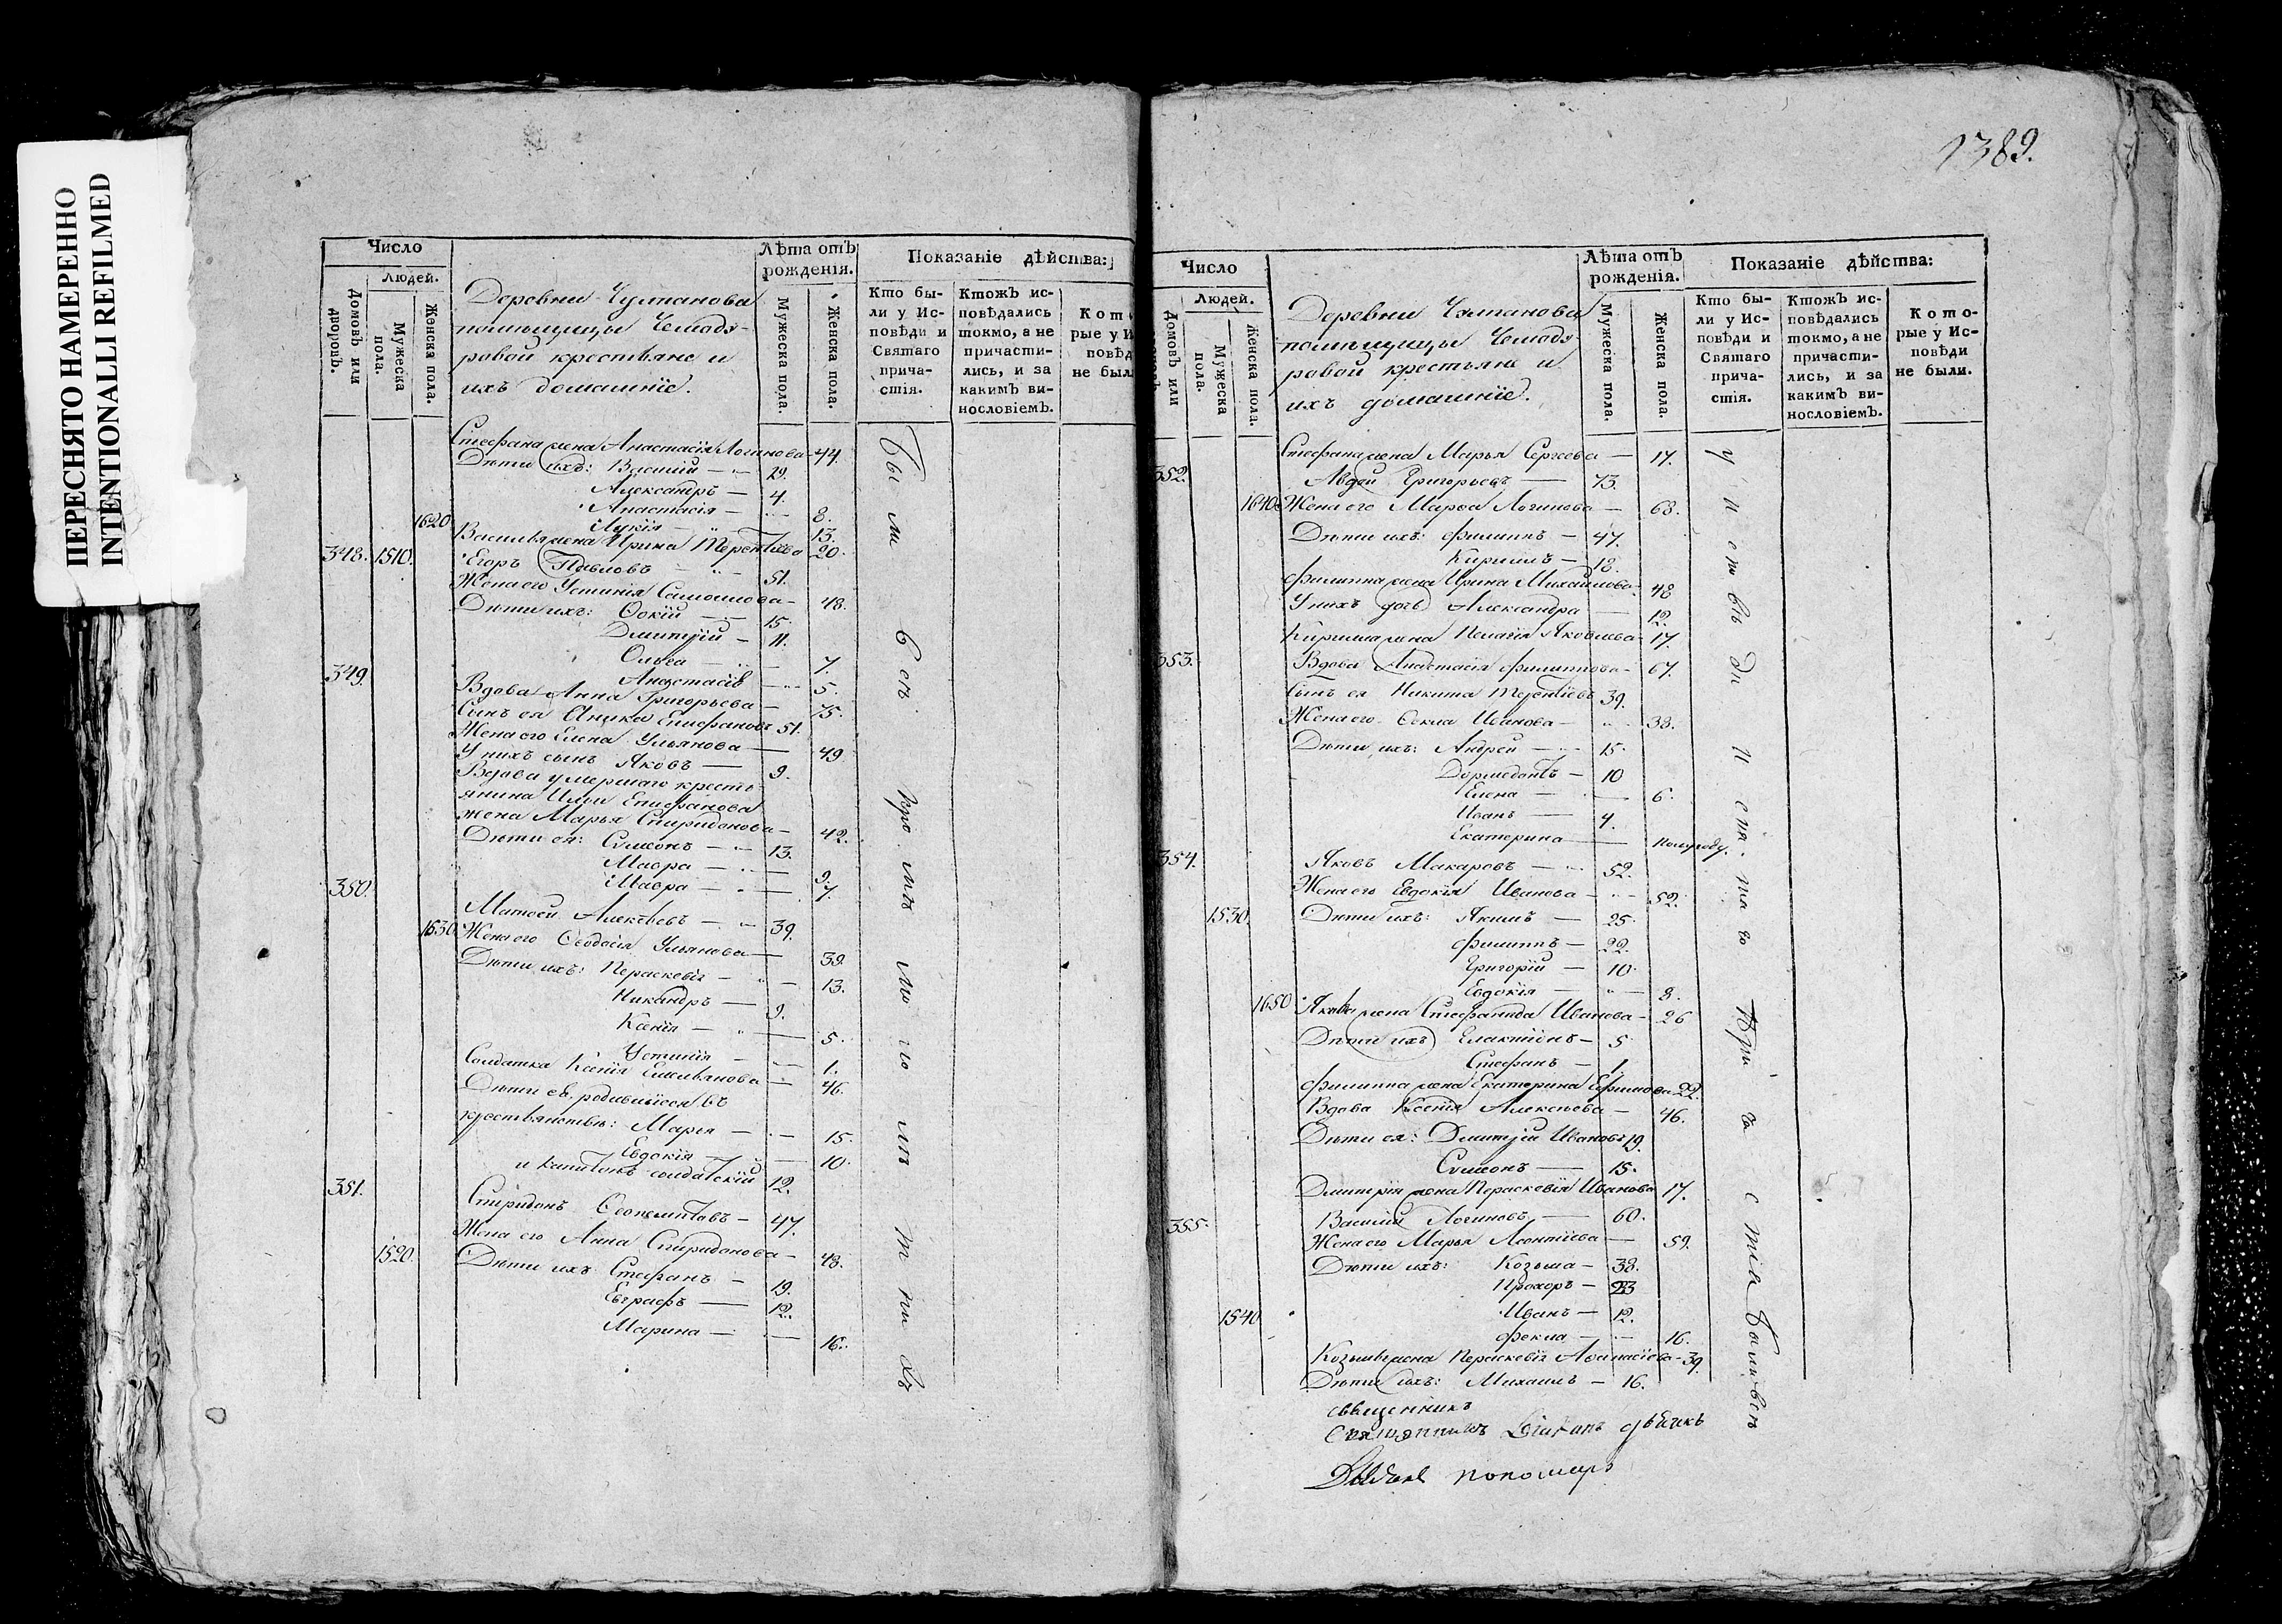 ПЕРЕСНЯТО НАМЕРЕННО
INTENTIONALLI REFILMED
1389.
Число
Людей.
Домовъ или дворовъ.
Мужеска пола.
Женска пола.
Деревни Чулпанова
помѣщицы Чемоду-
ровой крестьяне и
ихъ домашніе.
Лѣта отъ рожденія.
Мужеска пола.
Женска пола.
Показаніе дѣйства:
Кто бы-
ли у Ис-
повѣди и
Святаго
прича-
стія.
Ктожъ ис-
повѣдались
токмо, а не
причасти-
лись, и за
какимъ ви-
нословіемъ.
Кото
рые у И
повѣд
не был
Стефана жена Анастасія Логинова 44.
Дѣти ихъ: Василий 29.
Александръ 4.
Анастасія 8.
1620. Лукія 13.
Васильа жена Ирина Терентіева 20.
348. 1510. Егоръ Павловъ 51.
Жена его Устинія Самоилова 48.
Дѣти ихъ: Ѳокій 15.
Димитрій 11.
Ольга 7.
Анастасія 5.
349. Вдова Анна Григорьева 75.
Сынъ ея Аника Епифановъ 51.
Жена его Елена Ульянова 49.
У нихъ сынъ Яковъ 9.
Вдова умершаго кресть
янина Ильи Епифанова
жена Марья Спиридонова 42.
Дѣти ея: Симеонъ 13.
Мавра 9.
Мавра 7.
350. Матвей Алексѣевъ 39.
1630. Жена его Ѳеодосія Ульянова 39.
Дѣти ихъ: Пераскевія 13.
Никандръ 9.
Ксенія 5.
Устинія 1.
Солдатка Ксенія Емельянова 46.
Дѣти ея, родившіеся въ
крестьянствѣ: Марья 15.
Евдокія 10.
и Капитонъ солдатскій 12.
351. Спиридонъ Ѳеопемптовъ 47.
Жена его Анна Спиридонова 48.
1520. Дѣти ихъ Стефанъ 19.
Евграфъ 12.
Марина 16.
Число
Людей.
Домовъ или
Мужеска пола.
Женска пола.
Деревни Чулпанова
помѣщицы Чемоду
ровой крестьяне и
ихъ домашніе.
Лѣта отъ рожденія.
Мужеска пола.
Женска пола.
Показаніе дѣйства:
Кто бы-
ли у Ис-
повѣди и
Святаго
прича-
стія.
Ктожъ ис-
повѣдались
токмо, а не
причасти-
лись, и за
какимъ ви-
нословіемъ.
Кото-
рые у Ис-
повѣди
не были.
Стефана жена Марья Сергеева 17.
352. Авдей Григорьевъ 73.
1640. Жена его Марѳа Логинова 68.
Дѣти ихъ: Филиппъ 47.
Кирилъ 18.
Филиппа жена Ирина Михаилова 48
У нихъ дочь Александра 12.
Кирилла жена Пелагія Яковлева 17.
353. Вдова Анастасія Филиппова 67.
Сынъ ея Никита Терентіевъ 39.
Жена его Ѳекла Иванова 38.
Дѣти ихъ: Андрей 15.
Дормедонтъ 10
Елена 6.
Иванъ 4.
Екатерина полугоду.
354. Яковъ Макаровъ 52.
Жена его Евдокія Иванова 52.
1530. Дѣти ихъ: Якимъ 25.
Филиппъ 22.
Григорій 10.
Евдокія 8.
1650 Якима жена Стефанида Иванова 26
Дѣти ихъ Елактіонъ 5.
Стефанъ 1.
Филиппа жена Екатерина Ефимова 22.
Вдова Ксенія Алексѣева 46.
Дѣти ея: Димитрій Ивановъ 19.
Симеонъ 15.
Димитрія жена Пераскевія Иванова 17.
355. Василій Логиновъ 60.
Жена его Марья Леонтіева 59.
Дѣти ихъ: Козьма 38.
Прохоръ 23
1540 Иванъ 12.
Фекла 16.
Козьмы жена Пераскевія Аѳанасіева 39.
Дѣти ихъ: Михаилъ 16.
священникъ
дьячкъ
пономарь